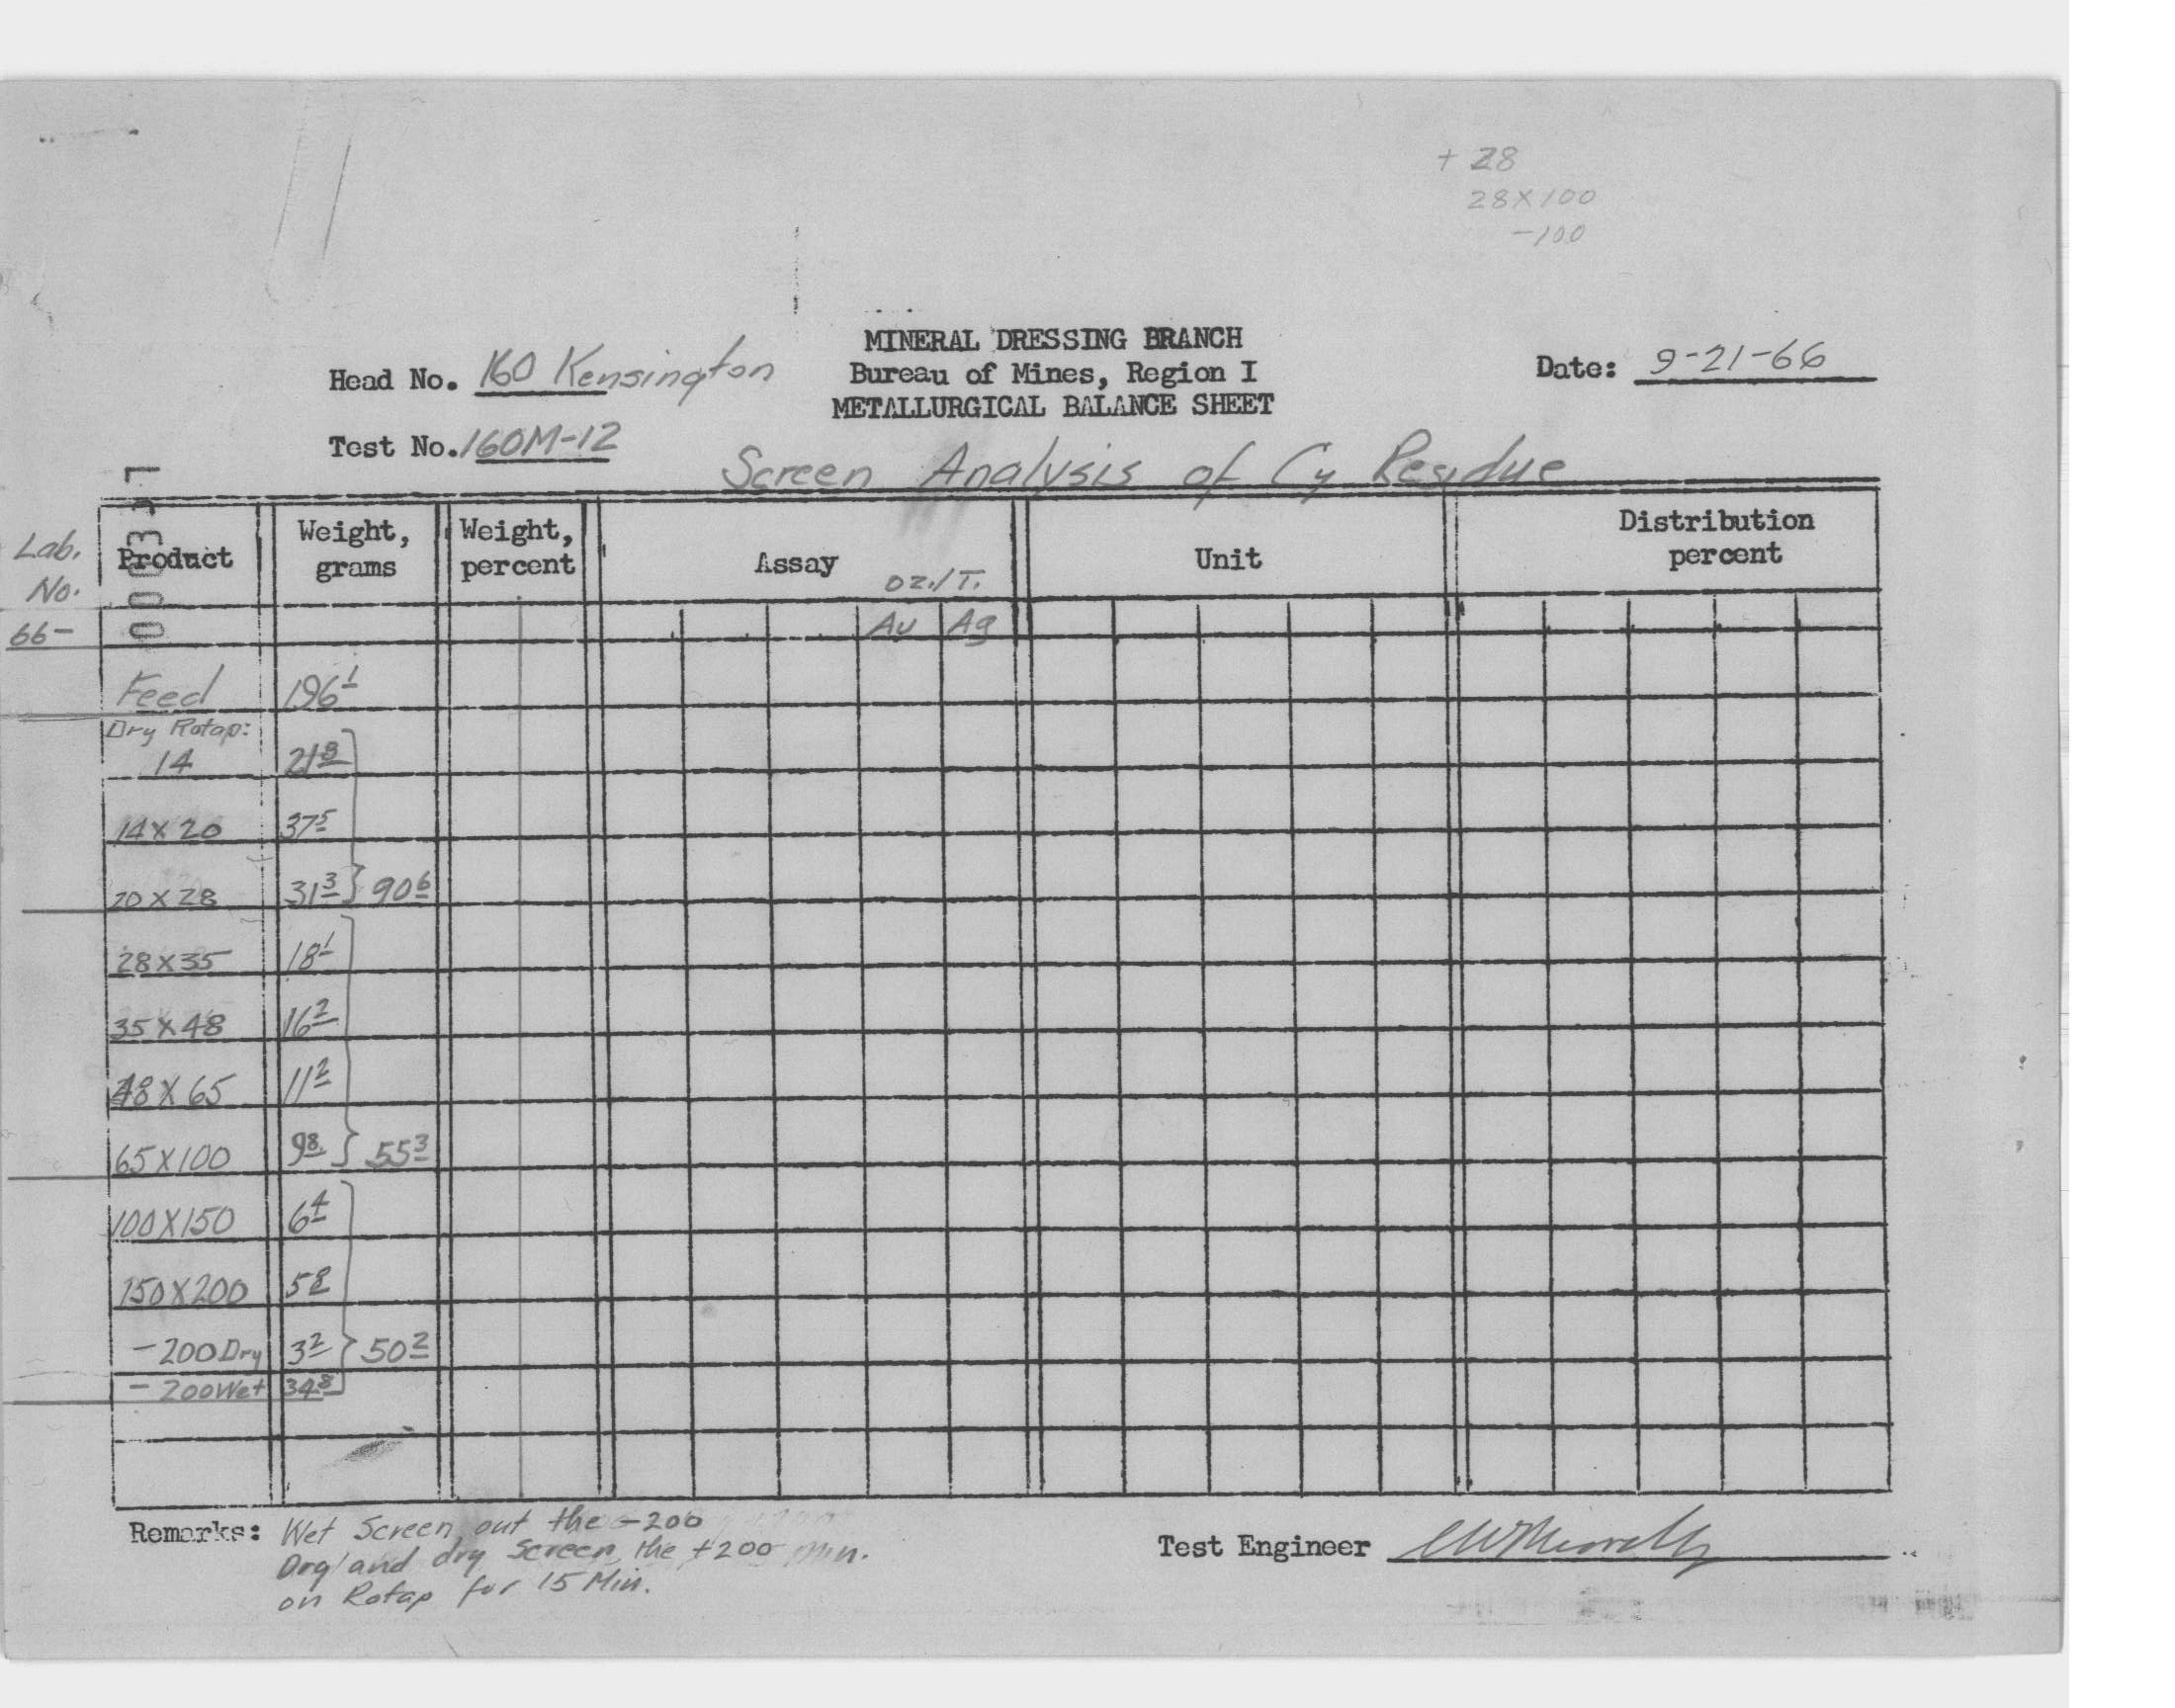 + 28
28X100
-100
MINERAL DRESSING BRANCH
Head No. 160 Kensington
Bureau of Mines, Region I
Date: 9-21-66
METALLURGICAL BALANCE SHEET
Test No. 160M-12
Screen Analysis of Cy Residue
Lab. No. 66-
Product
Weight, grams
Weight, percent
Assay oz./T.
Unit
Distribution percent
Au Ag
Feed 196 1
Dry Rotap:
14 21 8
14 X 20 37 5
20 X 28 31 3 } 90 6
28 X 35 18 1
35 X 48 16 2
48 X 65 11 2
65 X 100 9 8 } 55 3
100 X 150 6 4
150 X 200 5 8
-200 Dry 3 2 } 50 2
-200 Wet 34 8
Remarks: Wet Screen out the -200
and dry Screen the +200
on Rotap for 15 Min.
Test Engineer
0003